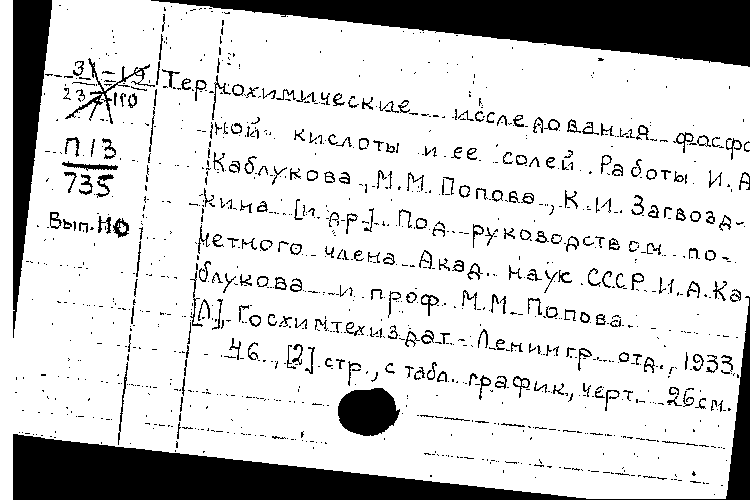 31-19
П13
735
Вып.110
Термохимические исследования фосфо
ной кислоты и ее солей. Работы И.А
Каблукова, М.М. Попова, К.И. Загвозд-
кина [и др]. Под руководством по-
четного члена Акад. наук СССР И.А.Ка
блукова и проф. М.М. Попова.
[Л], Госхимтехиздат. Ленингр. отд., 1933.
46, [2] стр., с табл. график, черт. 26см.